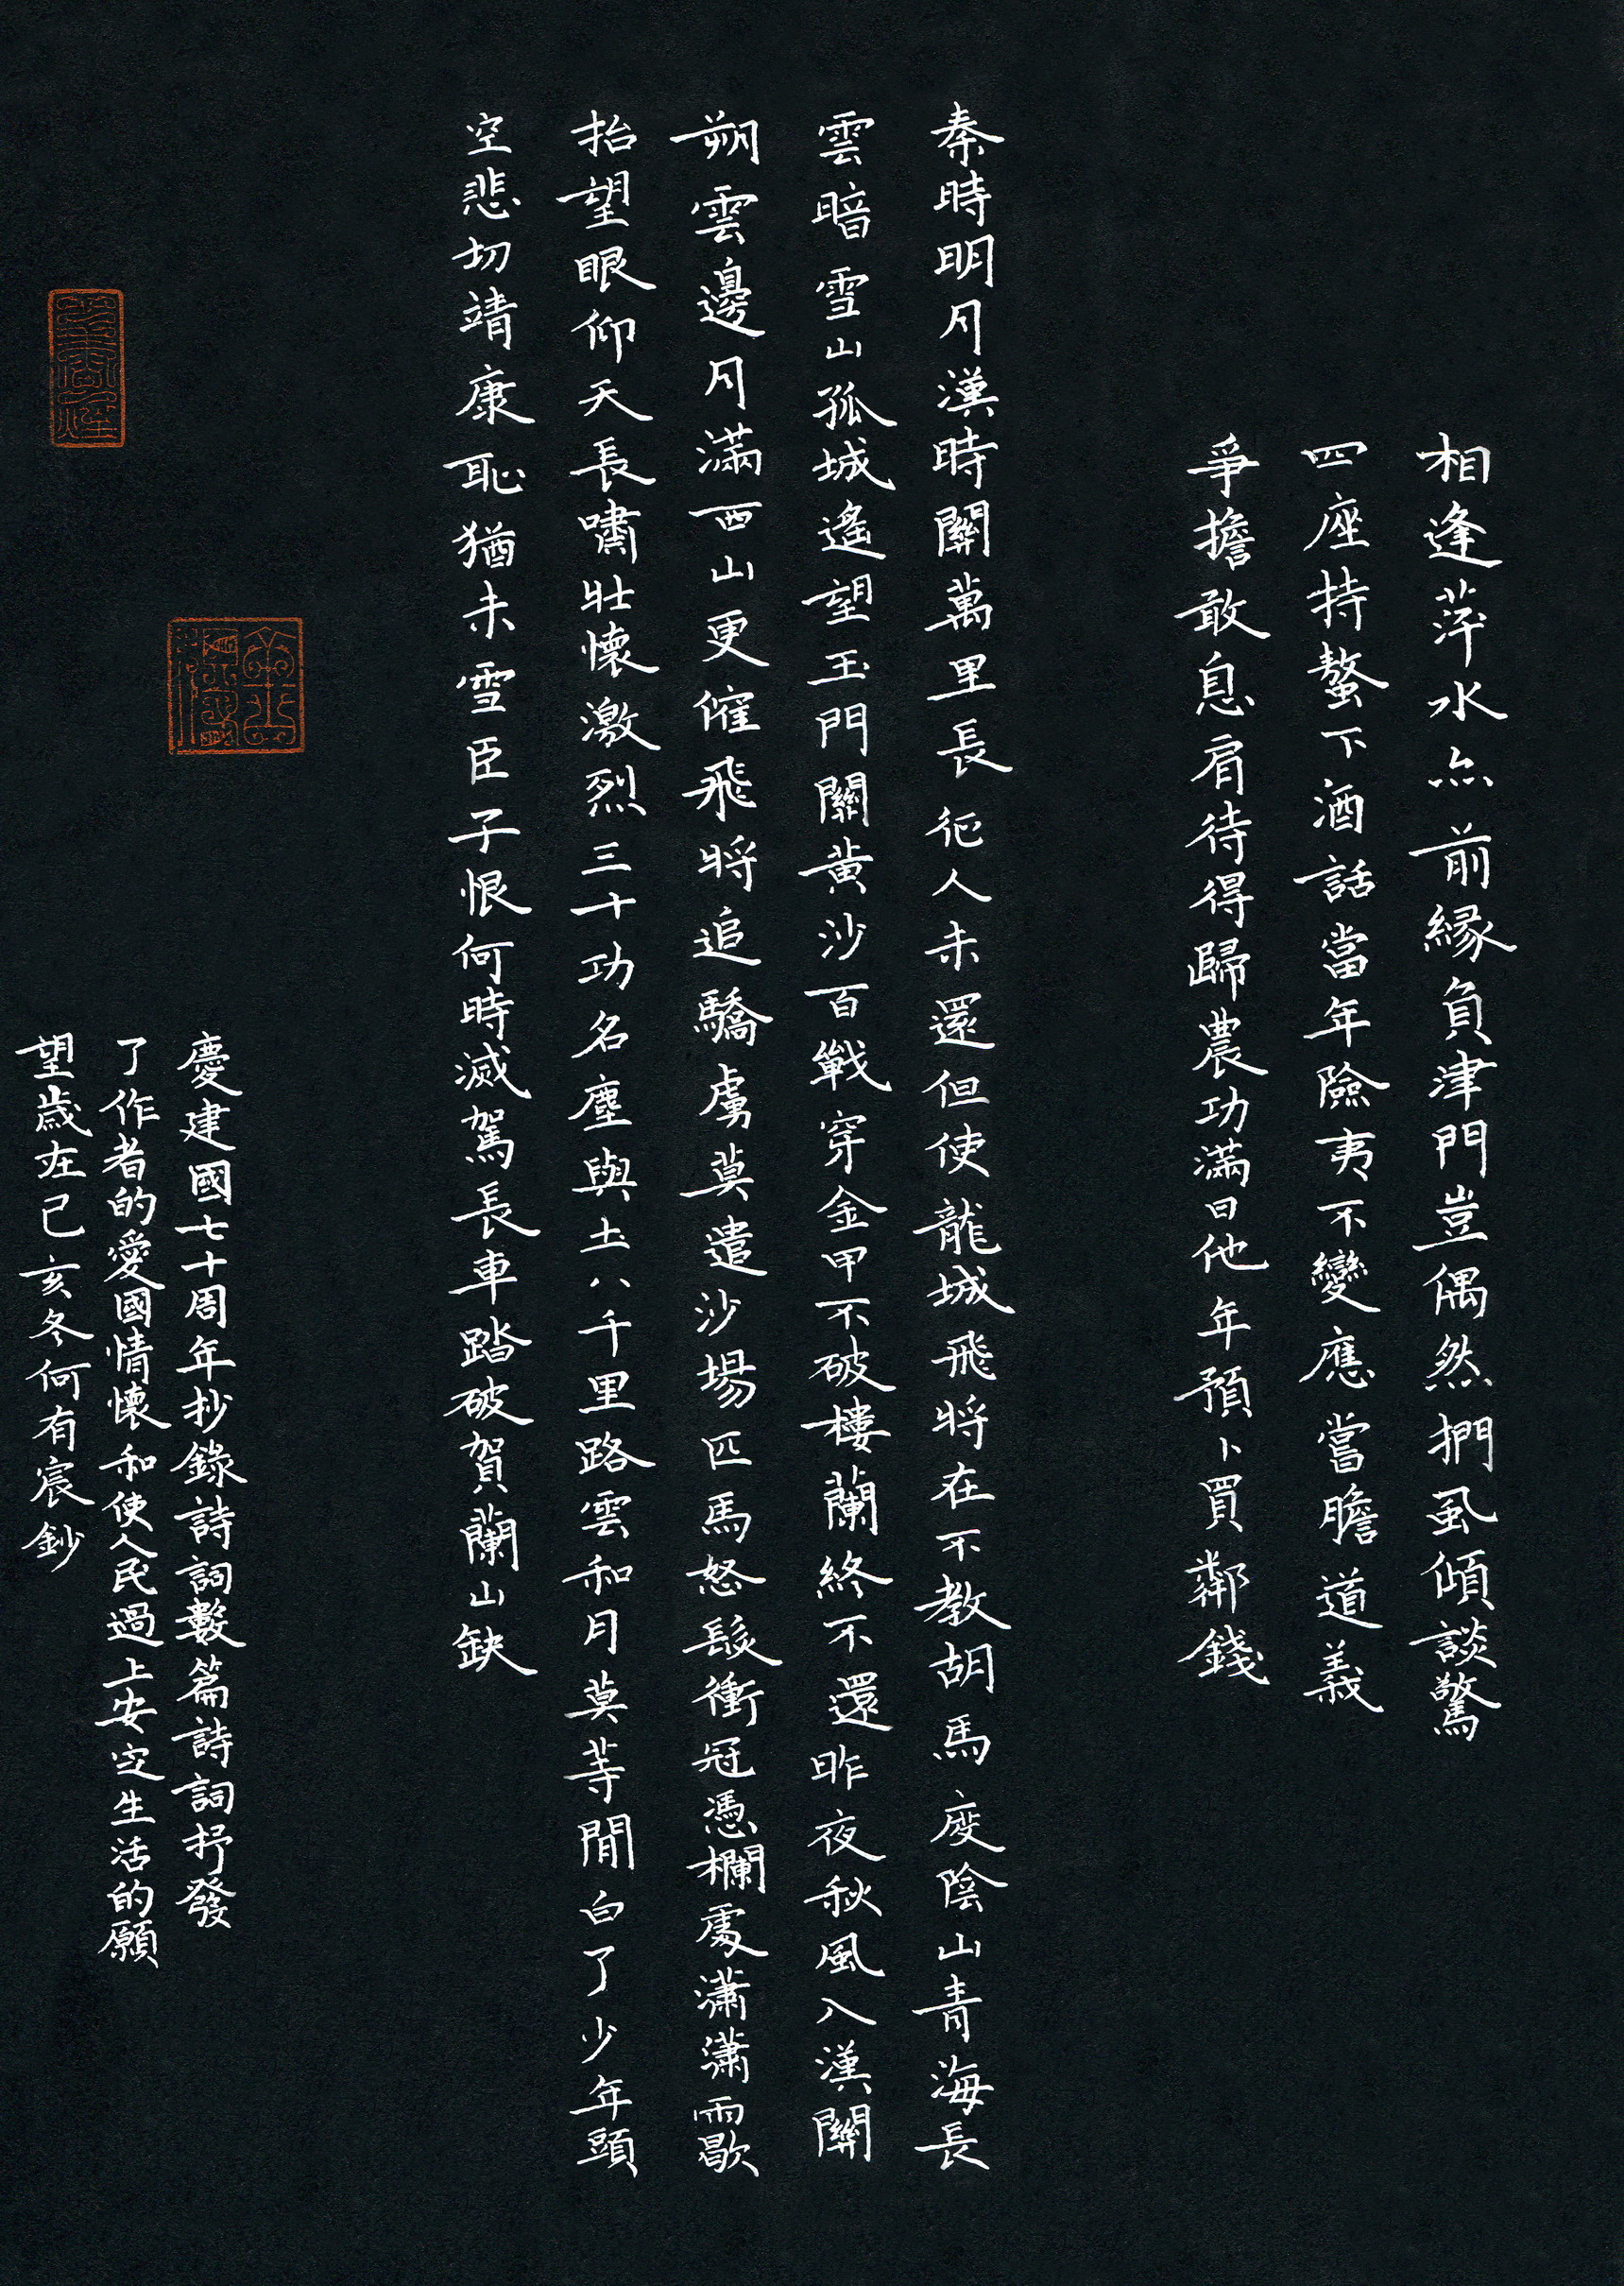 相逢萍水亦前緣負津門豈偶然捫虱傾談驚
四座持螯下酒話當年險夷不變應嘗膽道義
爭擔敢息肩待得歸農功滿日他年預卜買鄰錢
秦時明月漢時關萬里長征人未還但使龍城飛將在不教胡馬度陰山青海長
雲暗雪山孤城遙望玉門關黃沙百戰穿金甲不破樓蘭終不還昨夜秋風入漢關
朔雲邊月滿西山更催飛將追驕虜莫遣沙場匹馬怒髮衝冠憑欄處瀟瀟雨歇
抬望眼仰天長嘯壯懷激烈三十功名塵與土八千里路雲和月莫等閒白了少年頭
空悲切靖康恥猶未雪臣子恨何時滅駕長車踏破賀蘭山缺
慶建國七十周年抄錄詩詞數篇詩詞抒發
了作者的愛國情懷和使人民過上安定生活的願
望歲在己亥冬何有宸鈔